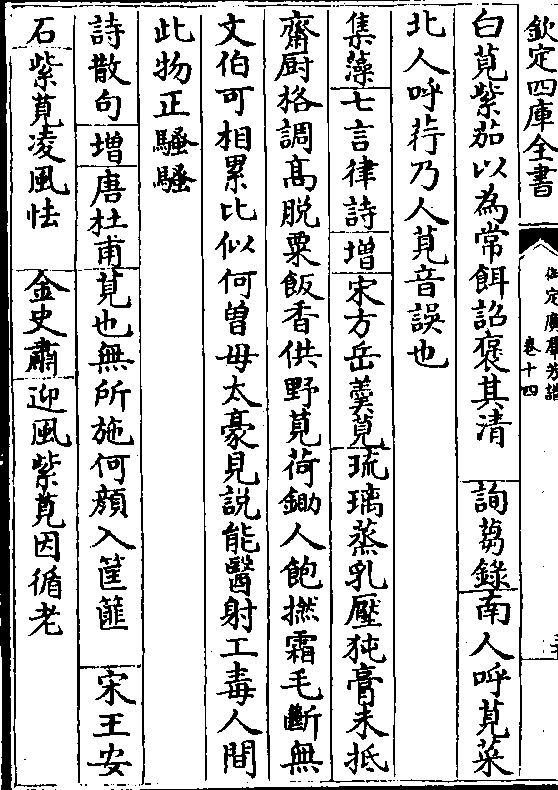 欽定四庫全書
御定廣羣芳譜
卷十四
白莧紫茄以為常餌詔褒其清 詢芻錄南人呼莧菜
北人呼荇乃人莧音誤也
集藻七言律詩增宋方岳羹莧琉璃蒸乳壓㹠膏未抵
齋厨格調髙脱粟飯香供野莧荷鋤人飽撚霜毛斷無
文伯可相累比似何曽毋太豪見説能醫射工毒人間
此物正騷騷
詩散句增唐杜甫莧也無所施何顔入筐篚 宋王安
石紫莧凌風怯 金史肅迎風紫莧因循老